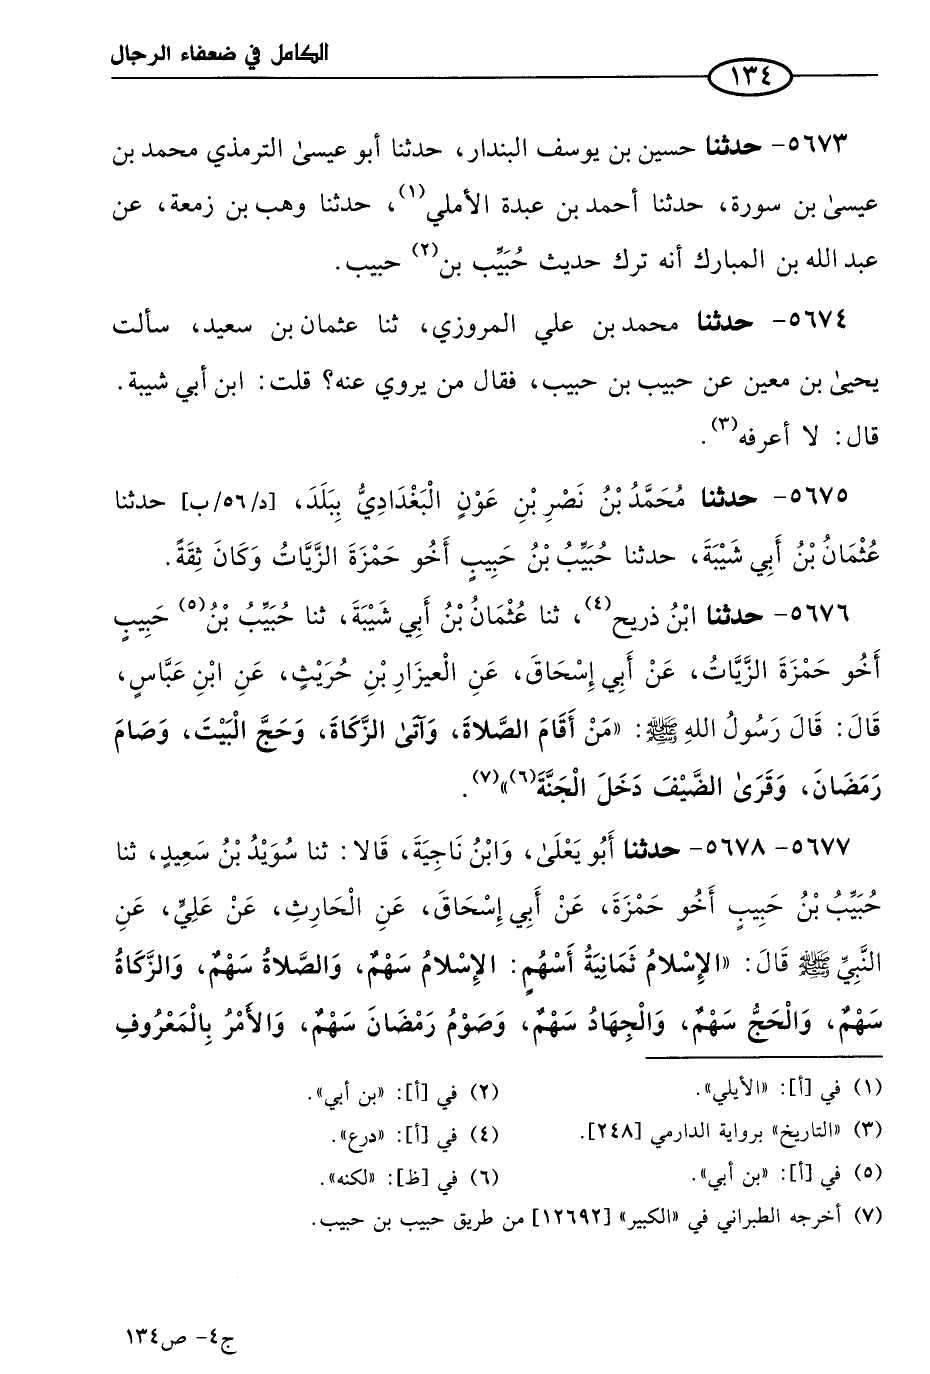 الكامل في ضعفاء الرجال
١٣٤
٥٦٧٣- حدثنا حسين بن يوسف البندار، حدثنا أبو عيسىٰ الترمذي محمد بن
عيسىٰ بن سورة، حدثنا أحمد بن عبدة الأملي(١)، حدثنا وهب بن زمعة، عن
عبد الله بن المبارك أنه ترك حديث حُبَيِّب بن(٢) حبيب.
٥٦٧٤- حدثنا محمد بن علي المروزي، ثنا عثمان بن سعيد، سألت
يحيىٰ بن معين عن حبيب بن حبيب، فقال من يروي عنه؟ قلت: ابن أبي شيبة.
قال: لا أعرفه(٣).
٥٦٧٥- حدثنا مُحَمَّدُ بْنُ نَصْرِ بْنِ عَوْنٍ الْبَغْدَادِيُّ بِبَلَدَ، [د/٥٦/ب] حدثنا
عُثْمَانُ بْنُ أَبِي شَيْبَةَ، حدثنا حُبَيِّبُ بْنُ حَبِيبٍ أَخُو حَمْزَةَ الزَّيَّاتُ وَكَانَ ثِقَةً.
٥٦٧٦- حدثنا ابْنُ ذريح(٤)، ثنا عُثْمَانُ بْنُ أَبِي شَيْبَةَ، ثنا حُبَيِّبُ بْنُ(٥) حَبِيبٍ
أَخُو حَمْزَةَ الزَّيَّاتُ، عَنْ أَبِي إِسْحَاقَ، عَنِ الْعيزَارِ بْنِ حُرَيْثٍ، عَنِ ابْنِ عَبَّاسٍ،
قَالَ: قَالَ رَسُولُ اللهِ ﷺ: «مَنْ أَقَامَ الصَّلاةَ، وَآتَىٰ الزَّكَاةَ، وَحَجَّ الْبَيْتَ، وَصَامَ
رَمَضَانَ، وَقَرَىٰ الضَّيْفَ دَخَلَ الْجَنَّةَ(٦)»(٧).
٥٦٧٧- ٥٦٧٨- حدثنا أَبُو يَعْلَىٰ، وَابْنُ نَاجِيَةَ، قَالا: ثنا سُوَيْدُ بْنُ سَعِيدٍ، ثنا
حُبَيِّبُ بْنُ حَبِيبٍ أَخُو حَمْزَةَ، عَنْ أَبِي إِسْحَاقَ، عَنِ الْحَارِثِ، عَنْ عَلِيٍّ، عَنِ
النَّبِيِّ ﷺ قَالَ: «الإِسْلامُ ثَمَانِيَةُ أَسْهُمٍ: الإِسْلامُ سَهْمٌ، وَالصَّلاةُ سَهْمٌ، وَالزَّكَاةُ
سَهْمٌ، وَالْحَجُّ سَهْمٌ، وَالْجِهَادُ سَهْمٌ، وَصَوْمُ رَمَضَانَ سَهْمٌ، وَالأَمْرُ بِالْمَعْرُوفِ
(١) في [أ]: «الأيلي».
(٢) في [أ]: «بن أبي».
(٣) «التاريخ» برواية الدارمي [٢٤٨].
(٤) في [أ]: «درع».
(٥) في [أ]: «بن أبي».
(٦) في [ظ]: «لكنه».
(٧) أخرجه الطبراني في «الكبير» [١٢٦٩٢] من طريق حبيب بن حبيب.
ج٤- ص١٣٤